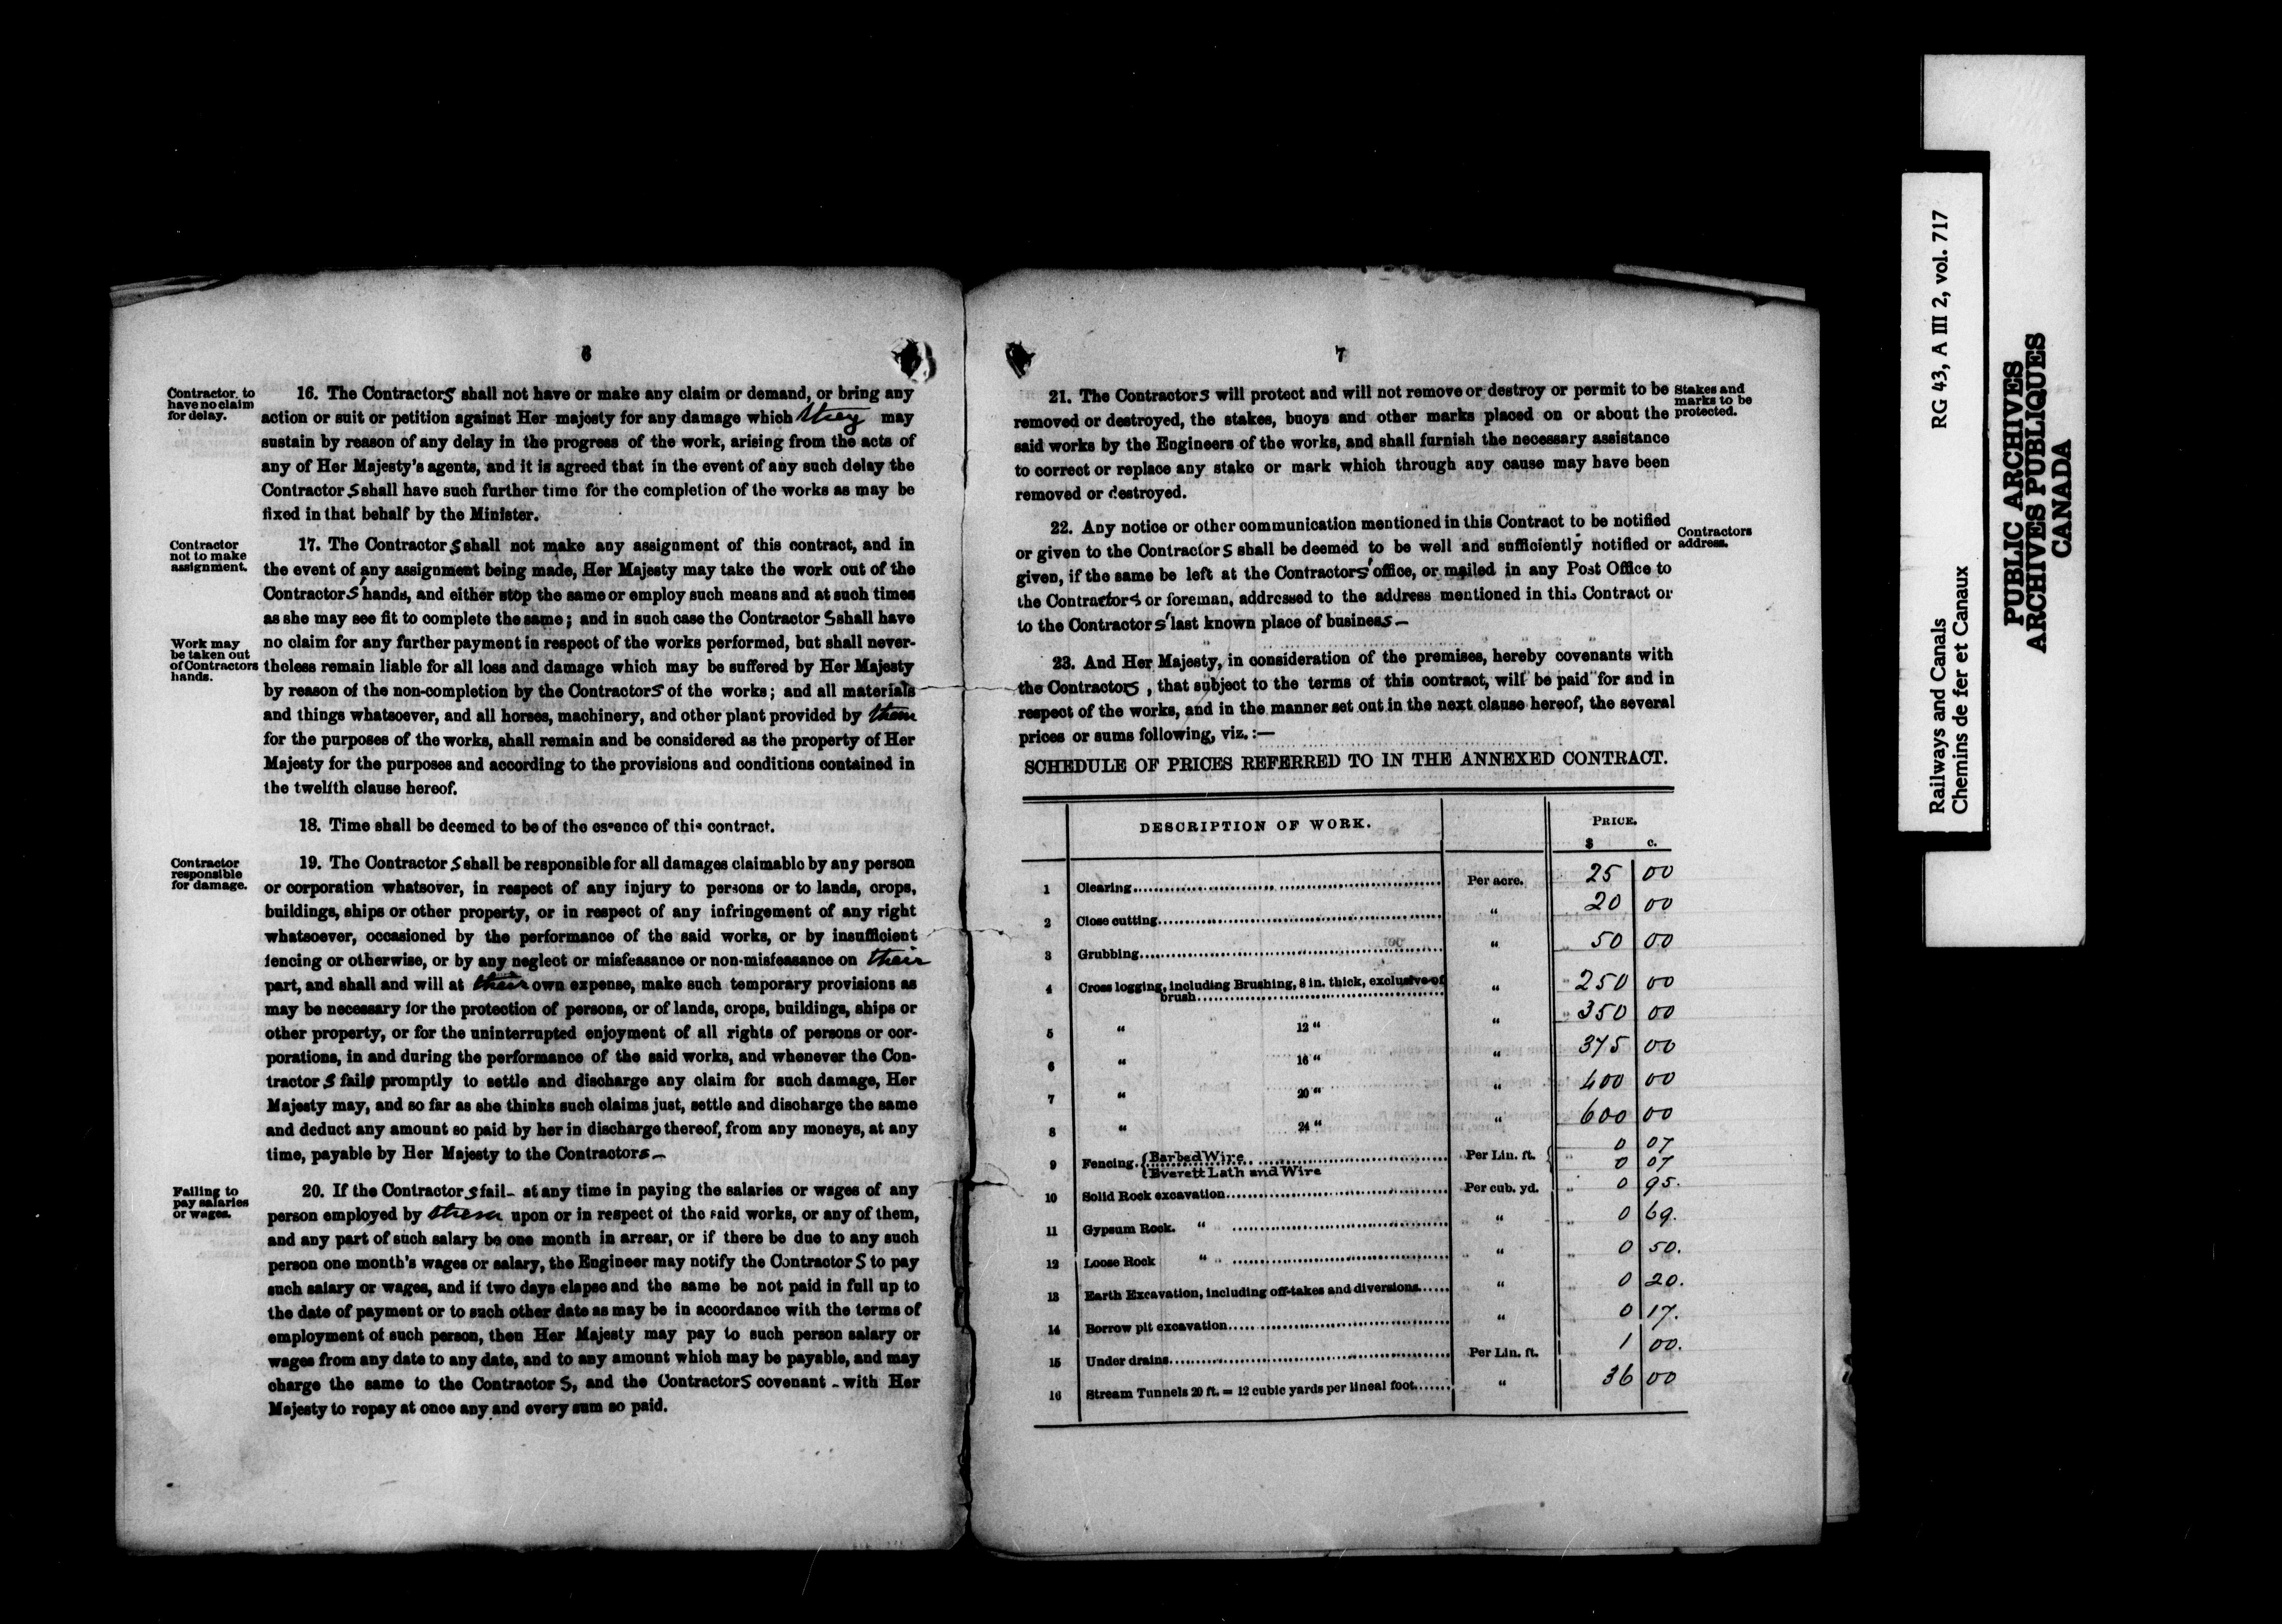 6
Contractor to
have no claim
for delay.
16. The Contractors shall not have or make any claim or demand, or bring any
action or suit or petition against Her majesty for any damage which they may
sustain by reason of any delay in the progress of the work, arising from the acts of
any of Her Majesty's agents, and it is agreed that in the event of any such delay the
Contractors shall have such further time for the completion of the works as may be
fixed in that behalf by the Minister.
Contractor
not to make
assignment.
17. The Contractors shall not make any assignment of this contract, and in
the event of any assignment being made, Her Majesty may take the work out of the
Contractors' hands, and either stop the same or employ such means and at such times
as she may see fit to complete the same; and in such case the Contractors shall have
Work may
be taken out
of Contractors
hands.
no claim for any further payment in respect of the works performed, but shall never-
theless remain liable for all loss and damage which may be suffered by Her Majesty
by reason of the non-completion by the Contractors of the works; and all materials
and things whatsoever, and all horses, machinery, and other plant provided by them
for the purposes of the works, shall remain and be considered as the property of Her
Majesty for the purposes and according to the provisions and conditions contained in
the twelfth clause hereof.
18. Time shall be deemed to be of the essence of this contract.
Contractor
responsible
for damage.
19. The Contractors shall be responsible for all damages claimable by any person
or corporation whatsover, in respect of any injury to persons or to lands, crops,
buildings, ships or other property, or in respect of any infringement of any right
whatsoever, occasioned by the performance of the said works, or by insufficient
fencing or otherwise, or by any neglect or misfeasance or non-misfeasance on their
part, and shall and will at their own expense, make such temporary provisions as
may be necessary for the protection of persons, or of lands, crops, buildings, ships or
other property, or for the uninterrupted enjoyment of all rights of persons or cor-
porations, in and during the performance of the said works, and whenever the Con-
tractors fail promptly to settle and discharge any claim for such damage, Her
Majesty may, and so far as she thinks such claims just, settle and discharge the same
and deduct any amount so paid by her in discharge thereof, from any moneys, at any
time, payable by Her Majesty to the Contractors—
Failing to
pay salaries
or wages.
20. If the Contractors fail- at any time in paying the salaries or wages of any
person employed by them upon or in respect of the said works, or any of them,
and any part of such salary be one month in arrear, or if there be due to any such
person one month's wages or salary, the Engineer may notify the Contractors to pay
such salary or wages, and if two days elapse and the same be not paid in full up to
the date of payment or to such other date as may be in accordance with the terms of
employment of such person, then Her Majesty may pay to such person salary or
wages from any date to any date, and to any amount which may be payable, and may
charge the same to the Contractors, and the Contractors covenant - with Her
Majesty to repay at once any and every sum so paid.
7
21. The Contractors will protect and will not remove or destroy or permit to be
removed or destroyed, the stakes, buoys and other marks placed on or about the
said works by the Engineers of the works, and shall furnish the necessary assistance
to correct or replace any stake or mark which through any cause may have been
removed or destroyed.
Stakes and
marks to be
protected.
22. Any notice or other communication mentioned in this Contract to be notified
or given to the Contractors shall be deemed to be well and sufficiently notified or
given, if the same be left at the Contractors' office, or mailed in any Post Office to
the Contractors or foreman, addressed to the address mentioned in this Contract or
to the Contractors' last known place of business—
Contractors
address.
23. And Her Majesty, in consideration of the premises, hereby covenants with
the Contractors, that subject to the terms of this contract, will be paid for and in
respect of the works, and in the manner set out in the next clause hereof, the several
prices or sums following, viz.:—
SCHEDULE OF PRICES REFERRED TO IN THE ANNEXED CONTRACT.
DESCRIPTION OF WORK. PRICE.
$ c.
1 Clearing Per acre. 25 00
2 Close cutting " 20 00
3 Grubbing " 50 00
4 Cross logging, including Brushing, 8 in. thick, exclusive of
brush " 250 00
5 " 12 " " 350 00
6 " 16 " " 375 00
7 " 20 " " 400 00
8 " 24 " " 600 00
9 Fencing { Barbed Wire Per Lin. ft. { 0 07
{ Everett Lath and Wire 0 07
10 Solid Rock excavation Per cub. yd. 0 95.
11 Gypsum Rock. " " 0 69.
12 Loose Rock " " 0 50.
13 Earth Excavation, including off-takes and diversions " 0 20.
14 Borrow pit excavation " 0 17.
15 Under drains Per Lin. ft. 1 00.
16 Stream Tunnels 20 ft. = 12 cubic yards per lineal foot " 36 00
RG 43, A III 2, vol. 717
Railways and Canals
Chemins de fer et Canaux
PUBLIC ARCHIVES
ARCHIVES PUBLIQUES
CANADA